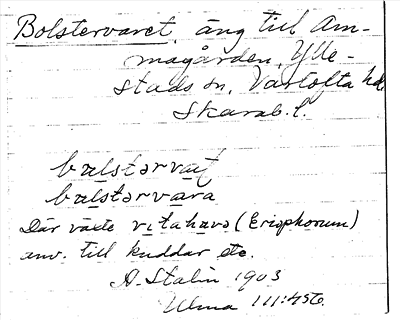 Bolstervaret, äng till Am-
magården, Ylle-
stads sn, Vartofta hd
Skarab. l.
bɑlstərvat
bɑlstərvara
Där växte vitahavə (Eriophorum)
anv. till kuddar etc.
A. Stalin 1903
Ulma 111:456.